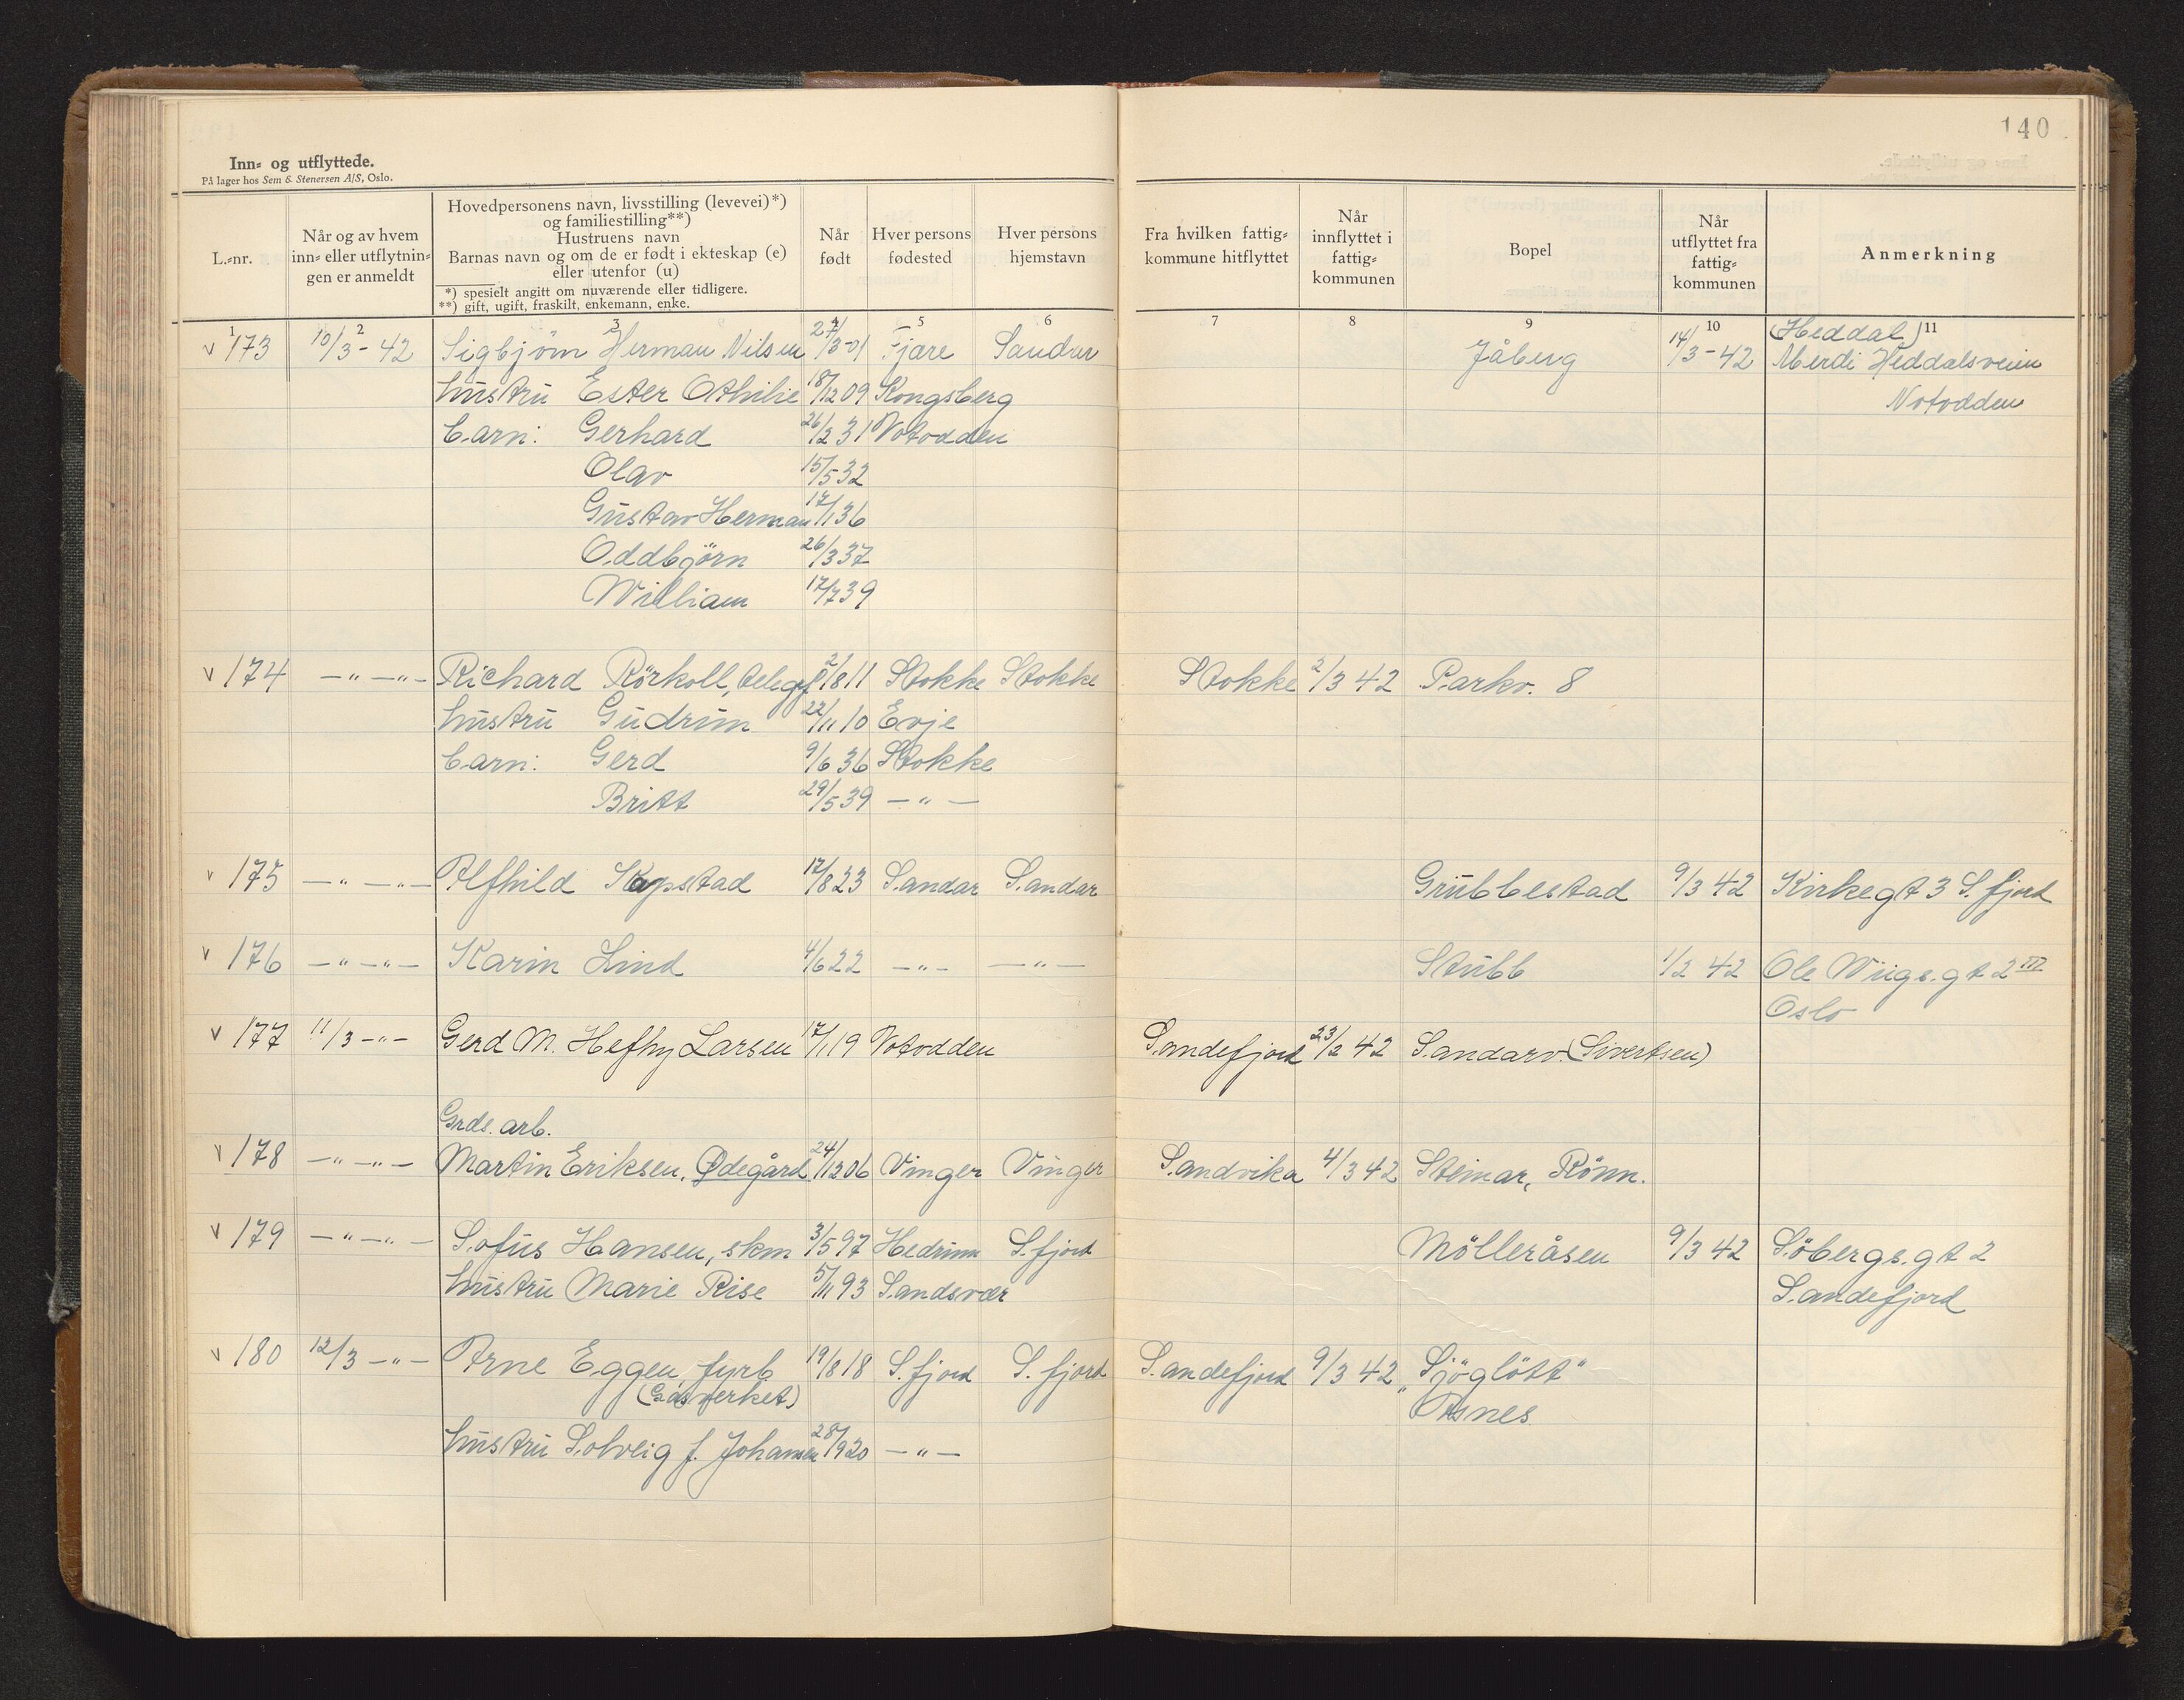 140
Inn- og utflyttede.
På lager hos Sem & Stenersen A/S, Oslo.
L.-nr.
Når og av hvem
inn- eller utflytnin-
gen er anmeldt
Hovedpersonens navn, livsstilling (levevei)*)
og familiestilling**)
Hustruens navn
Barnas navn og om de er født i ekteskap (e)
eller utenfor (u)
*) spesielt angitt om nuværende eller tidligere.
**) gift, ugift, fraskilt, enkemann, enke.
Når
født
Hver persons
fødested
Hver persons
hjemstavn
Fra hvilken fattig-
kommune hitflyttet
Når
innflyttet i
fattig-
kommunen
Bopel
Når
utflyttet fra
fattig-
kommunen
Anmerkning
1 2 3 4 5 6 7 8 9 10 11
(Heddal)
v 173 10/3-42 Sigbjörn Herman Nilsen 27/3-01 Fjære Sandar Jåberg 14/3-42 Merdi Heddalsveien
hustru Ester Othilie 18/12 09 Kongsberg Notodden
barn: Gerhard 26/2 31 Notodden
Olav 15/5 32
Gustav Herman 17/1 36
Oddbjörn 26/3 37
William 17/7 39
v 174 -"- -"- Richard Rörkoll, telegrf 2/8 11 Stokke Stokke Stokke 2/3 42 Parkv. 8
hustru Gudrun 22/11 10 Evje
barn: Gerd 9/6 36 Stokke
Britt 29/5 39 -"-
v 175 -"- -"- Alfhild Kapstad 17/8 23 Sandar Sandar Grubbestad 9/3 42 Kirkegt 3 S.fjord
v 176 -"- -"- Karin Lind 4/6 22 -"- -"- Stubb 1/2 42 Ole Wiigs.gt 2 III
Oslo
v 177 11/3 -"- Gerd M. Hefhy Larsen 17/1 19 Notodden Sandefjord 23/2 42 Sandarv. (Sivertsen)
Grds. arb.
v 178 -"- -"- Martin Eriksen, Ødegård 24/12 06 Vinger Vinger Sandvika 4/3 42 Steinar, Rönn.
v 179 -"- -"- Sofus Hansen, skm 3/5 97 Hedrum S.fjord Mölleråsen 9/3 42 Söbergs.gt 2
hustru Marie Rise 5/11 93 Sandsvær Sandefjord
v 180 12/3 -"- Arne Eggen, fyrb 19/8 18 S.fjord S.fjord Sandefjord 9/3 42 "Sjöglött"
(Gasverket) Asnes
hustru Solveig f. Johansen 28/9 20 -"-